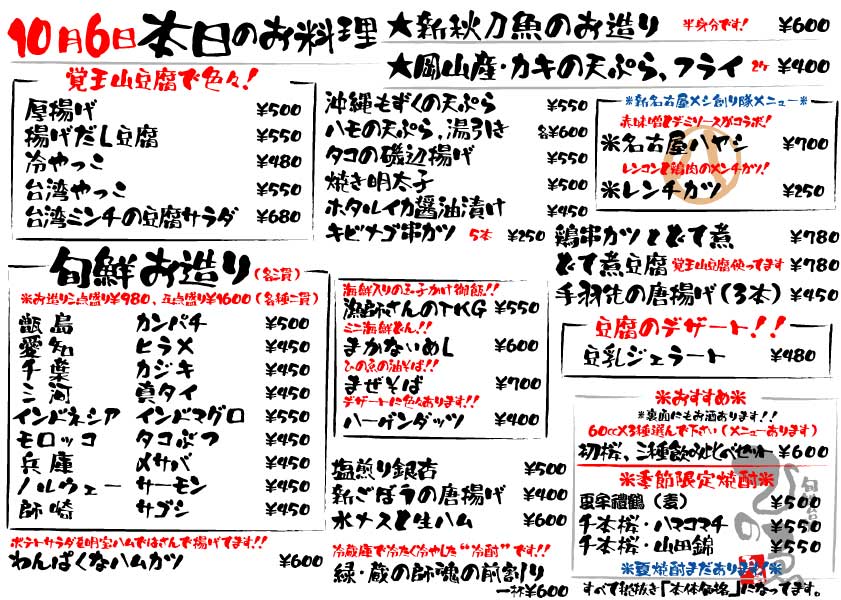 10月6日 本日のお料理
★新秋刀魚のお造り 半身分です! ¥600
★岡山産・カキの天ぷら、フライ 2ケ ¥400
覚王山豆腐で色々!
厚揚げ ¥500
揚げだし豆腐 ¥550
冷やっこ ¥480
台湾やっこ ¥550
台湾ミンチの豆腐サラダ ¥680
旬鮮お造り(各二貫)
※お造り三点盛り¥980、五点盛り¥1600(各種二貫)
甑島 カンパチ ¥500
愛知 ヒラメ ¥450
千葉 カジキ ¥450
三河 真タイ ¥450
インドネシア インドマグロ ¥550
モロッコ タコぶつ ¥450
兵庫 〆サバ ¥450
ノルウェー サーモン ¥450
師崎 サゴシ ¥450
ポテトサラダを明宝ハムではさんで揚げてます!!
わんぱくなハムカツ ¥600
沖縄もずくの天ぷら ¥550
ハモの天ぷら、湯引き 各¥600
タコの磯辺揚げ ¥550
焼き明太子 ¥500
ホタルイカ醤油漬け ¥450
キビナゴ串カツ 5本 ¥250
海鮮入りの玉子かけ御飯!!
漁師さんのTKG ¥550
ミニ海鮮どん!!
まかないめし ¥600
ひの魚の油そば!!
まぜそば ¥700
デザートに色々あります!!
ハーゲンダッツ ¥400
塩煎り銀杏 ¥500
新ごぼうの唐揚げ ¥400
水ナスと生ハム ¥600
冷蔵庫で冷たく冷やした“冷酎”です!!
緑・蔵の師魂の前割り
一杯¥600
※新名古屋メシ創り隊メニュー※
赤味噌とデミソースがコラボ!
※名古屋ハヤシ ¥700
レンコンと鶏肉のメンチカツ!
※レンチカツ ¥250
鶏串カツとどて煮 ¥780
どて煮豆腐 覚王山豆腐使ってます ¥780
手羽先の唐揚げ(3本) ¥450
豆腐のデザート!!
豆乳ジェラート ¥480
※おすすめ※
※裏面にもお酒あります!!
60cc×3種選んで下さい(メニューあります)
初桜、三種飲み比べセット ¥600
※季節限定焼酎※
夏牢禮鶴(麦) ¥500
千本桜・ハマコマチ ¥550
千本桜・山田錦 ¥550
※夏焼酎まだあります!※
すべて税抜き「本体価格」になってます。